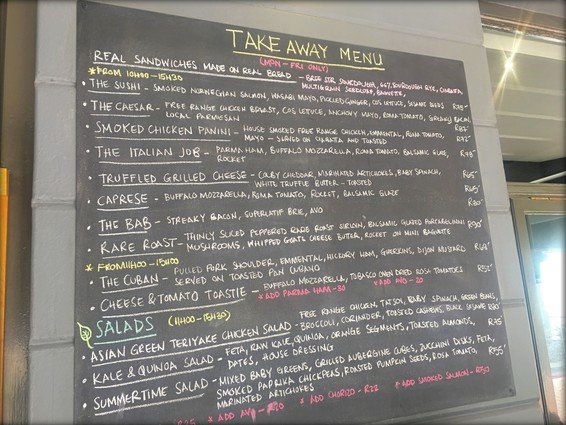 TAKE AWAY MENU
(MON - FRI ONLY)
REAL SANDWICHES MADE ON REAL BREAD - BREE STR SOURDOUGH, 66% SOURDOUGH RYE, CIABATTA
*FROM 10H00 - 15H30 MULTIGRAIN SEEDLOAF, BAGUETTE
• THE SUSHI - SMOKED NORWEGIAN SALMON, WASABI MAYO, PICKLED GINGER, COS LETTUCE, SESAME SEEDS
• THE CAESAR - FREE RANGE CHICKEN BREAST, COS LETTUCE, ANCHOVY MAYO, ROMA TOMATO, STREAKY BACON
LOCAL PARMESAN
• SMOKED CHICKEN PANINI - HOUSE SMOKED FREE RANGE CHICKEN, EMMENTAL, ROMA TOMATO,
MAYO - SERVED ON CIABATTA AND TOASTED
• THE ITALIAN JOB - PARMA HAM, BUFFALO MOZZARELLA, ROMA TOMATO, BALSAMIC GLAZE,
ROCKET
• TRUFFLED GRILLED CHEESE - COLBY CHEDDAR, MARINATED ARTICHOKES, BABY SPINACH,
WHITE TRUFFLE BUTTER - TOASTED
• CAPRESE - BUFFALO MOZZARELLA, ROMA TOMATO, ROCKET, BALSAMIC GLAZE
• THE BAB - STREAKY BACON, SUPERLATIF BRIE, AVO
• RARE ROAST - THINLY SLICED PEPPERED RARE ROAST SIRLOIN, BALSAMIC GLAZED PORCABELLINI
MUSHROOMS, WHIPPED GOATS CHEESE BUTTER, ROCKET ON MINI BAGUETTE
* FROM 11H00 - 15H00
• THE CUBAN - PULLED PORK SHOULDER, EMMENTAL, HICKORY HAM, GHERKINS, DIJON MUSTARD
SERVED ON TOASTED PAN CUBANO
• CHEESE & TOMATO TOASTIE - BUFFALO MOZZARELLA, TOBASCO OVEN DRIED ROSA TOMATOES
* ADD PARMA HAM - 30 * ADD AVO - 20
SALADS (11H00 - 15H30)
• ASIAN GREEN TERIYAKE CHICKEN SALAD - FREE RANGE CHICKEN, TATSOI, BABY SPINACH, GREEN BEANS,
BROCCOLI, CORIANDER, TOASTED CASHEWS, BLACK SESAME
• KALE & QUINOA SALAD - FETA, RAW KALE, QUINOA, ORANGE SEGMENTS, TOASTED ALMONDS,
DATES, HOUSE DRESSING
• SUMMERTIME SALAD - MIXED BABY GREENS, GRILLED AUBERGINE CUBES, ZUCCHINI DISKS, FETA,
SMOKED PAPRIKA CHICKPEAS, ROASTED PUMPKIN SEEDS, ROSA TOMATO,
MARINATED ARTICHOKES
* ADD AVO - R20 * ADD CHORIZO - R22 * ADD SMOKED SALMON - R50